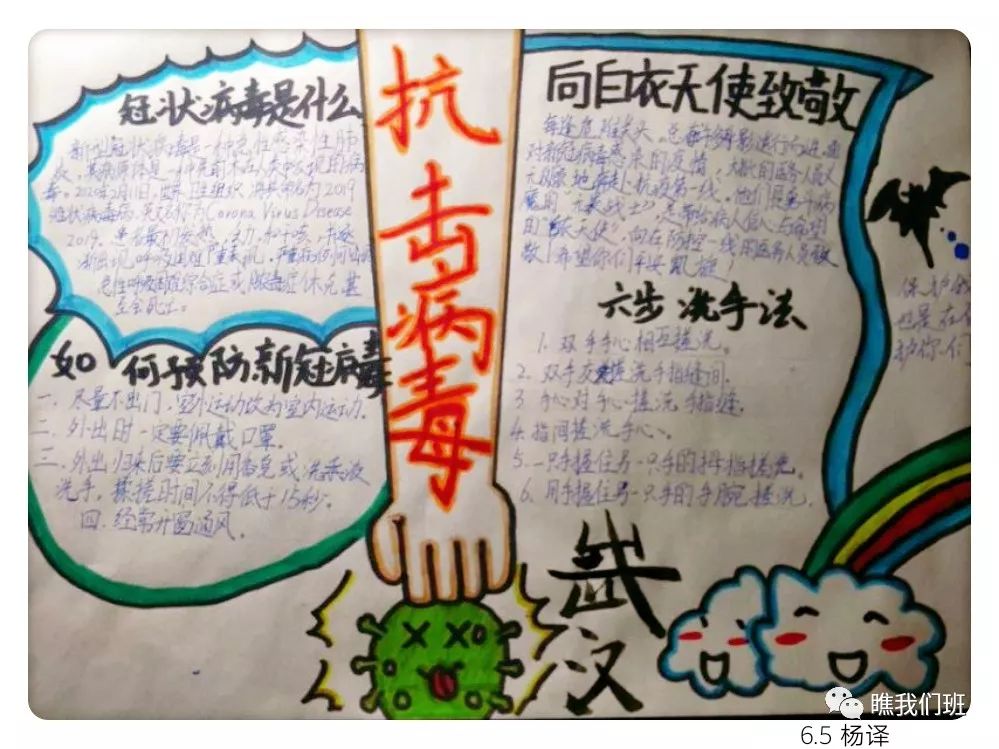 抗击病毒
冠状病毒是什么
新型冠状病毒是一种急性感染性肺
炎,其病原体是一种先前未在人类中发现的病
毒。2020年2月11日,世界卫生组织将其命名为2019
冠状病毒病,英文名称为Corona Virus Disease
2019。患者最初发热、乏力、和干咳,
渐出现呼吸困难
急性呼吸窘迫综合症或脓毒症休克甚
至会死亡。
如何预防新冠病毒
一、尽量不出门,室外活动改为室内运动。
二、外出时一定要佩戴口罩。
三、外出归来后要立刻用香皂或洗手液
洗手,揉搓时间不得低于15秒。
四、经常开窗通风。
向白衣天使致敬
每逢危难关头,总有
对新冠病毒感染的疫情,医务人员义
无反顾地奔赴抗疫第一线。他们是奋斗病
魔的
的白衣天使",向在防控一线的医务人员致
敬!希望你们平安凯旋!
六步洗手法
1. 双手手心相互搓洗。
2. 双手交叉搓洗手指缝间。
3. 手心对手心搓洗手指缝。
4. 指间搓洗手心。
5. 一只手握住另一只手的拇指搓洗。
6. 用手握住另一只手的手腕搓洗。
武汉
保护
也是在
护你们
瞧我们班
6.5 杨译